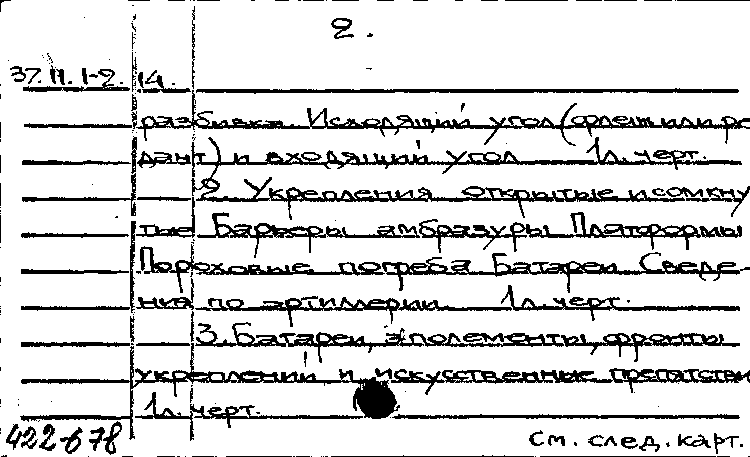 2.
37.II.1-2. 14.
разбивка Исходящий угол (флеш или ре
дант) и входящий угол 1л. черт.
2. Укрепления открытые и сомкну
тые Барьеры амбразуры Платформы
Пороховые погреба Батареи Сведе-
ния по артиллерии 1л. черт.
3. Батареи, эполементы, фронты
укреплений и искусственные препятстви
1л. черт.
422-678
См. след. карт.